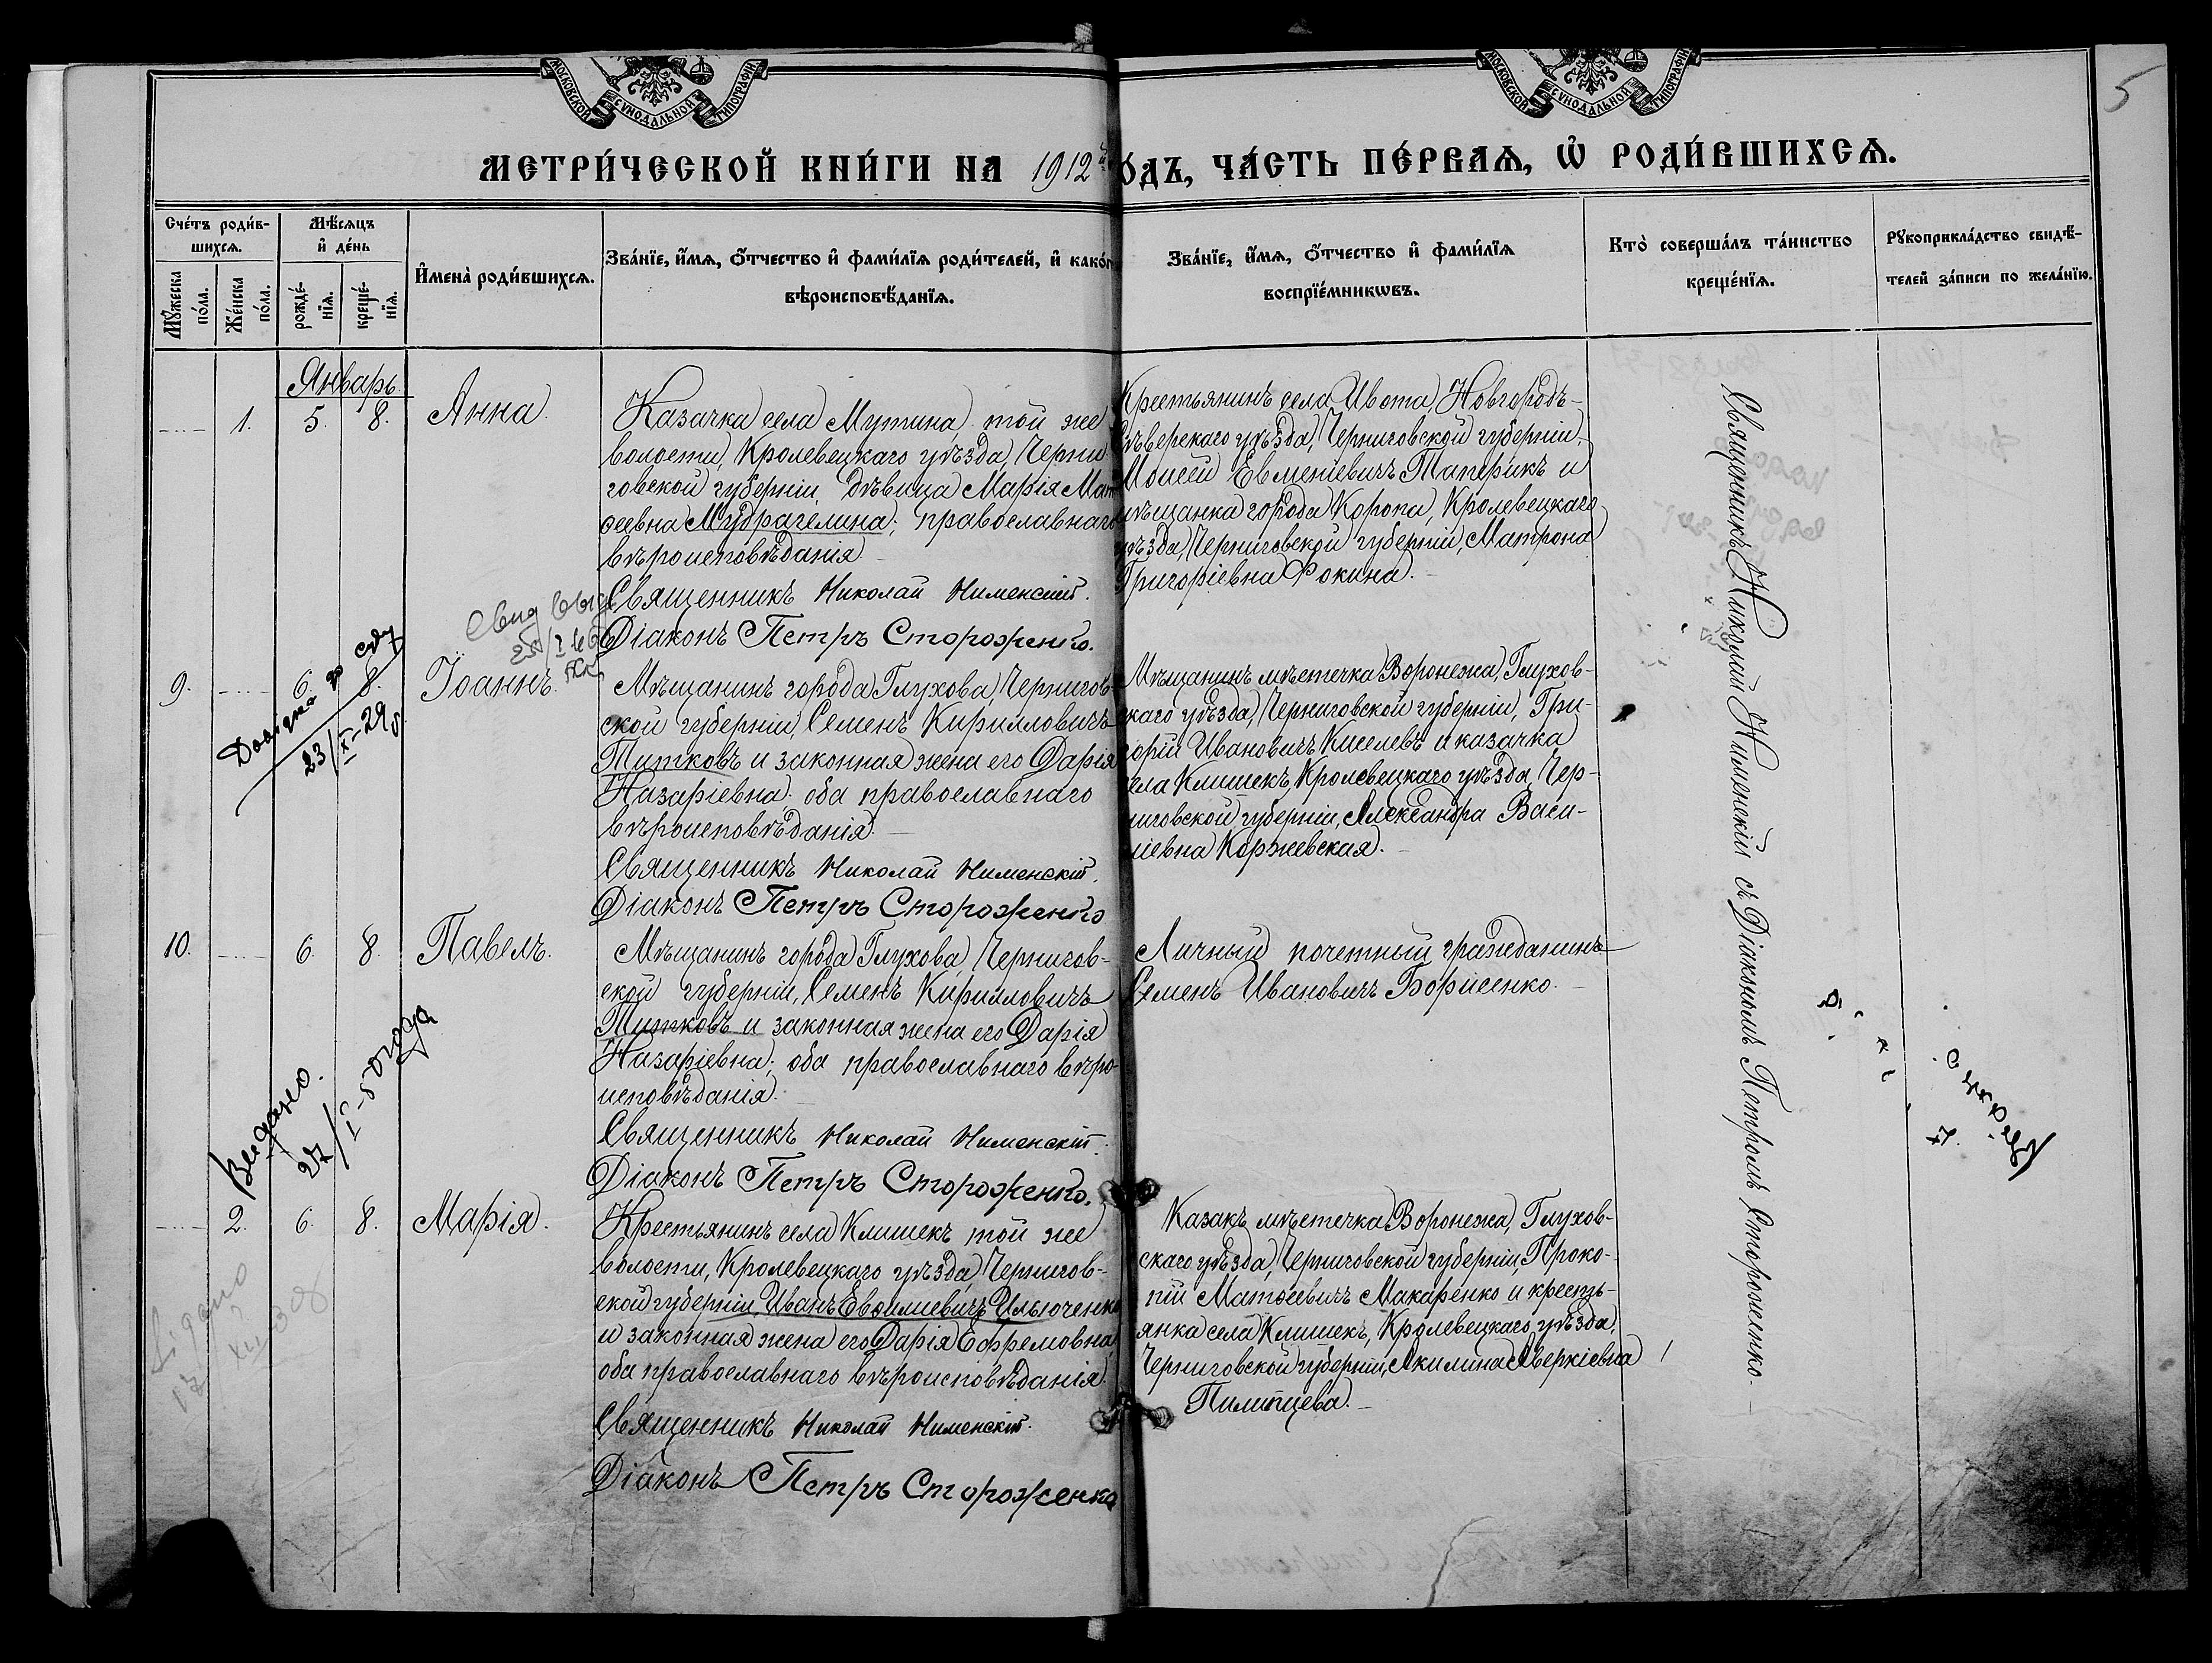 МОСКОВСКОЙ СѴНОДАЛЬНОЙ ТИПОГРАФІИ
МОСКОВСКОЙ СѴНОДАЛЬНОЙ ТИПОГРАФІИ
5
МЕТРИ́ЧЕСКОЙ КНИ́ГИ НА 1912й
О́ДЪ, ЧА́СТЬ ПЕ́РВАѦ, Ѡ҆ РОДИ́ВШИХСѦ.
Сче́тъ роди́в-
шихсѧ.
Мꙋ́жеска
по́ла.
Же́нска
по́ла.
Мѣ́сѧцъ
и҆ де́нь
рожде́-
нїѧ.
креще́-
нїѧ.
И҆мена̀ роди́вшихсѧ.
Зва́нїе, и҆́мѧ, ѻ҆́тчество и҆ фами́лїѧ роди́телей, и҆ како́г
вѣроисповѣ́данїѧ.
Зва́нїе, и҆́мѧ, ѻ҆́тчество и҆ фами́лїѧ
воспрїе́мникѡвъ.
Кто̀ соверша́лъ та́инство
креще́нїѧ.
Рꙋкоприкла́дство свидѣ́-
телей за́писи по жела́нїю.
Январь.
1. 5. 8. Анна.
Казачка села Мутина, той же
волости, Кролевецкаго уѣзда, Черни-
говской губерніи, дѣвица Марія Мат
ѳеевна Мудрагелина; православнаго
вѣроисповѣданія. -
Священникъ Николай Нименскій.
Діаконъ Петръ Стороженко.
Крестьянинъ села Ивота, Новгородъ-
Сѣверскаго уѣзда, Черниговской губерніи,
Моисей Евменіевичъ Таперикъ и
мѣщанка города Коропа, Кролевецкаго
уѣзда, Черниговской губерніи, Матрона
Григоріевна Фокина. -
Свид выд
9. 6. 8. Іоаннъ.
23/XI-29 р.
Мѣщанинъ города Глухова, Чернигов-
ской губерніи, Семенъ Кирилловичъ
Титковъ и законная жена его Дарія
Назаріевна; оба православнаго
вѣроисповѣданія. -
Священникъ Николай Нименскій.
Діаконъ Петръ Стороженко
Мѣщанинъ мѣстечка Воронежа, Глухов-
скаго уѣзда, Черниговской губерніи, Гри-
горій Ивановичъ Киселевъ и казачка
села Клишекъ, Кролевецкаго уѣзда, Чер-
ниговской губерніи, Александра Васи-
ліевна Коржевская. -
10. 6. 8. Павелъ.
Видано.
27/I-50 года
Мѣщанинъ города Глухова, Чернигов-
ской губерніи, Семенъ Кирилловичъ
Титковъ и законная жена его Дарія
Назаріевна; оба православнаго вѣро-
исповѣданія. -
Священникъ Николай Нименскій.
Діаконъ Петръ Стороженко.
Личный почетный гражданинъ
Семенъ Ивановичъ Борисенко. -
2. 6. 8. Марія.
Крестьянинъ села Клишекъ той же
волости, Кролевецкаго уѣзда, Чернигов-
ской губерніи, Иванъ Евѳиміевичъ Ильюченко
и законная жена его Дарія Ефремовна,
оба православнаго вѣроисповѣданія.
Священникъ Николай Нименскій.
Діаконъ Петръ Стороженко
Казакъ мѣстечка Воронежа, Глухов-
скаго уѣзда, Черниговской губерніи, Проко-
пій Матѳеевичъ Макаренко и кресть-
янка села Клишекъ, Кролевецкаго уѣзда,
Черниговской губерніи, Акилина Аверкіевна
Пилипцева. -
Священникъ Николай Нименскій съ Діакономъ Петромъ Стороженко. -